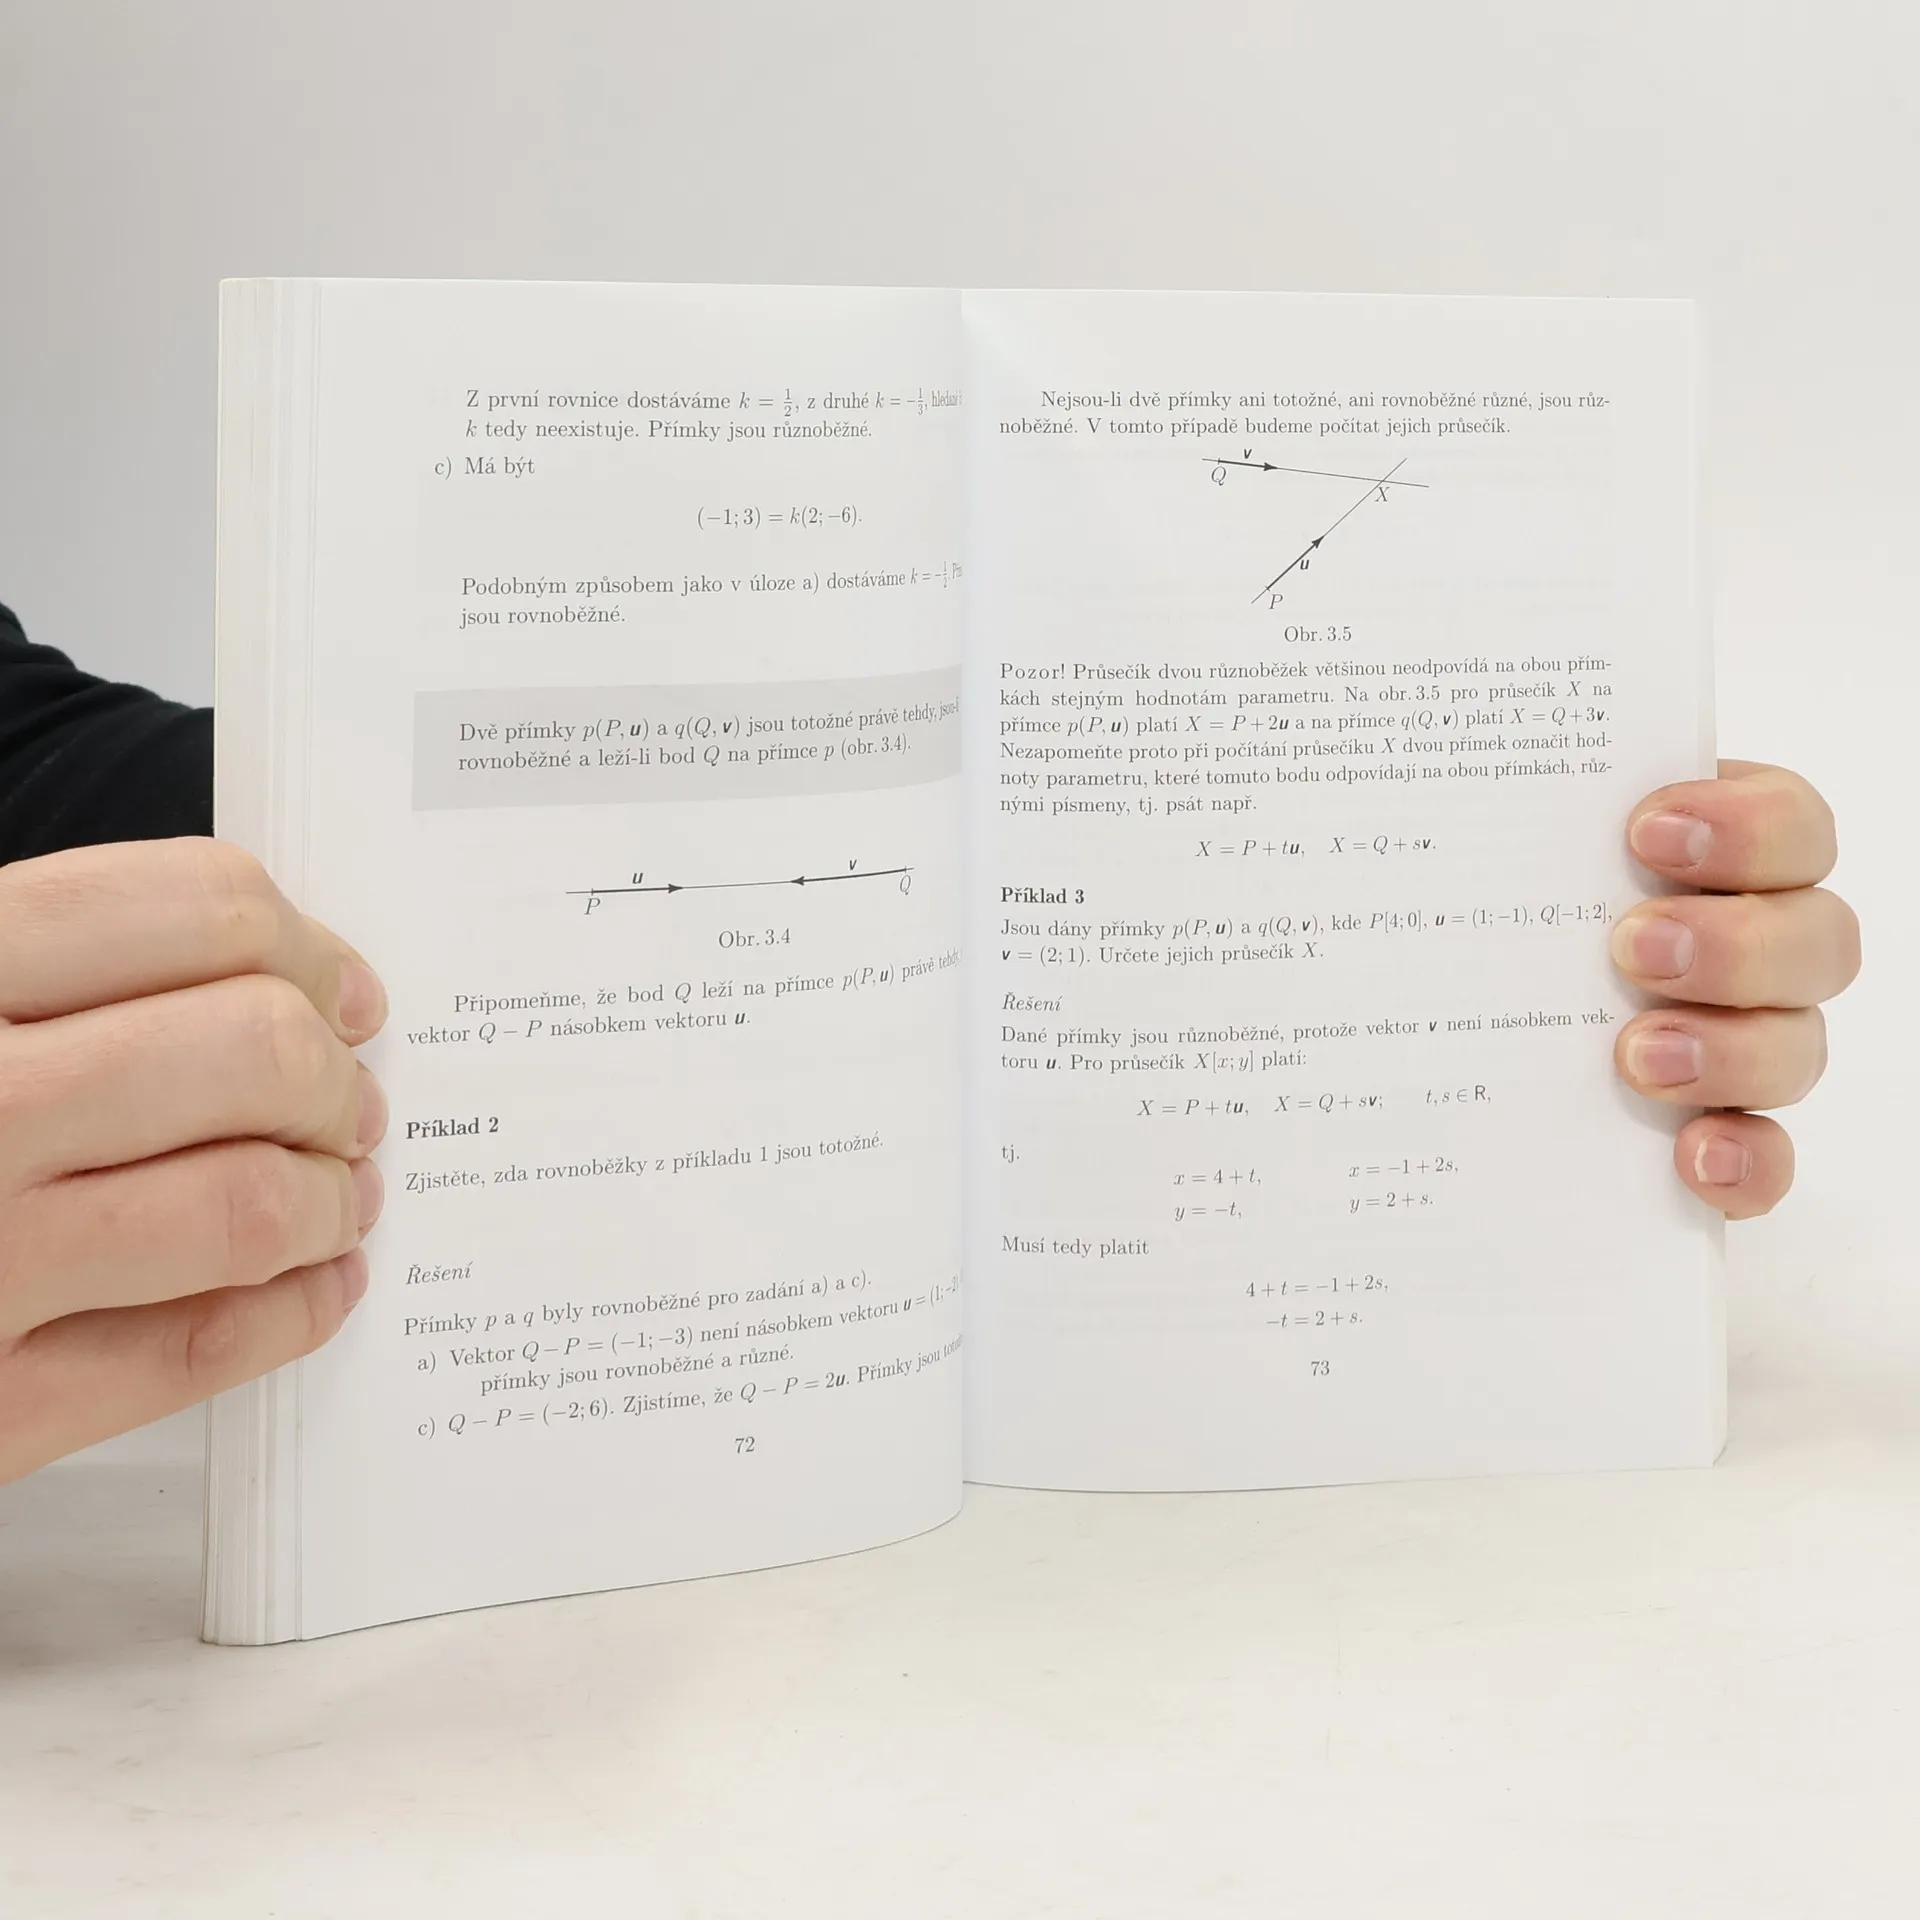 Z první rovnice dostáváme k = 1/2, z druhé k = −1/3,
k tedy neexistuje. Přímky jsou různoběžné.
c) Má být
(−1; 3) = k(2; −6).
Podobným způsobem jako v úloze a) dostáváme k = −1/2.
jsou rovnoběžné.
Dvě přímky p(P, u) a q(Q, v) jsou totožné právě tehdy, jsou-li
rovnoběžné a leží-li bod Q na přímce p (obr. 3.4).
u v
P Q
Obr. 3.4
Připomeňme, že bod Q leží na přímce p(P, u) právě tehdy,
vektor Q − P násobkem vektoru u.
Příklad 2
Zjistěte, zda rovnoběžky z příkladu 1 jsou totožné.
Řešení
Přímky p a q byly rovnoběžné pro zadání a) a c).
a) Vektor Q − P = (−1; −3) není násobkem vektoru u = (1; −2)
přímky jsou rovnoběžné a různé.
c) Q − P = (−2; 6). Zjistíme, že Q − P = 2u. Přímky jsou
72
Nejsou-li dvě přímky ani totožné, ani rovnoběžné různé, jsou růz-
noběžné. V tomto případě budeme počítat jejich průsečík.
v
Q
X
u
P
Obr. 3.5
Pozor! Průsečík dvou různoběžek většinou neodpovídá na obou přím-
kách stejným hodnotám parametru. Na obr. 3.5 pro průsečík X na
přímce p(P, u) platí X = P + 2u a na přímce q(Q, v) platí X = Q + 3v.
Nezapomeňte proto při počítání průsečíku X dvou přímek označit hod-
noty parametru, které tomuto bodu odpovídají na obou přímkách, růz-
nými písmeny, tj. psát např.
X = P + tu, X = Q + sv.
Příklad 3
Jsou dány přímky p(P, u) a q(Q, v), kde P[4; 0], u = (1; −1), Q[−1; 2],
v = (2; 1). Určete jejich průsečík X.
Řešení
Dané přímky jsou různoběžné, protože vektor v není násobkem vek-
toru u. Pro průsečík X[x; y] platí:
X = P + tu, X = Q + sv; t, s ∈ R,
tj.
x = 4 + t, x = −1 + 2s,
y = −t, y = 2 + s.
Musí tedy platit
4 + t = −1 + 2s,
−t = 2 + s.
73